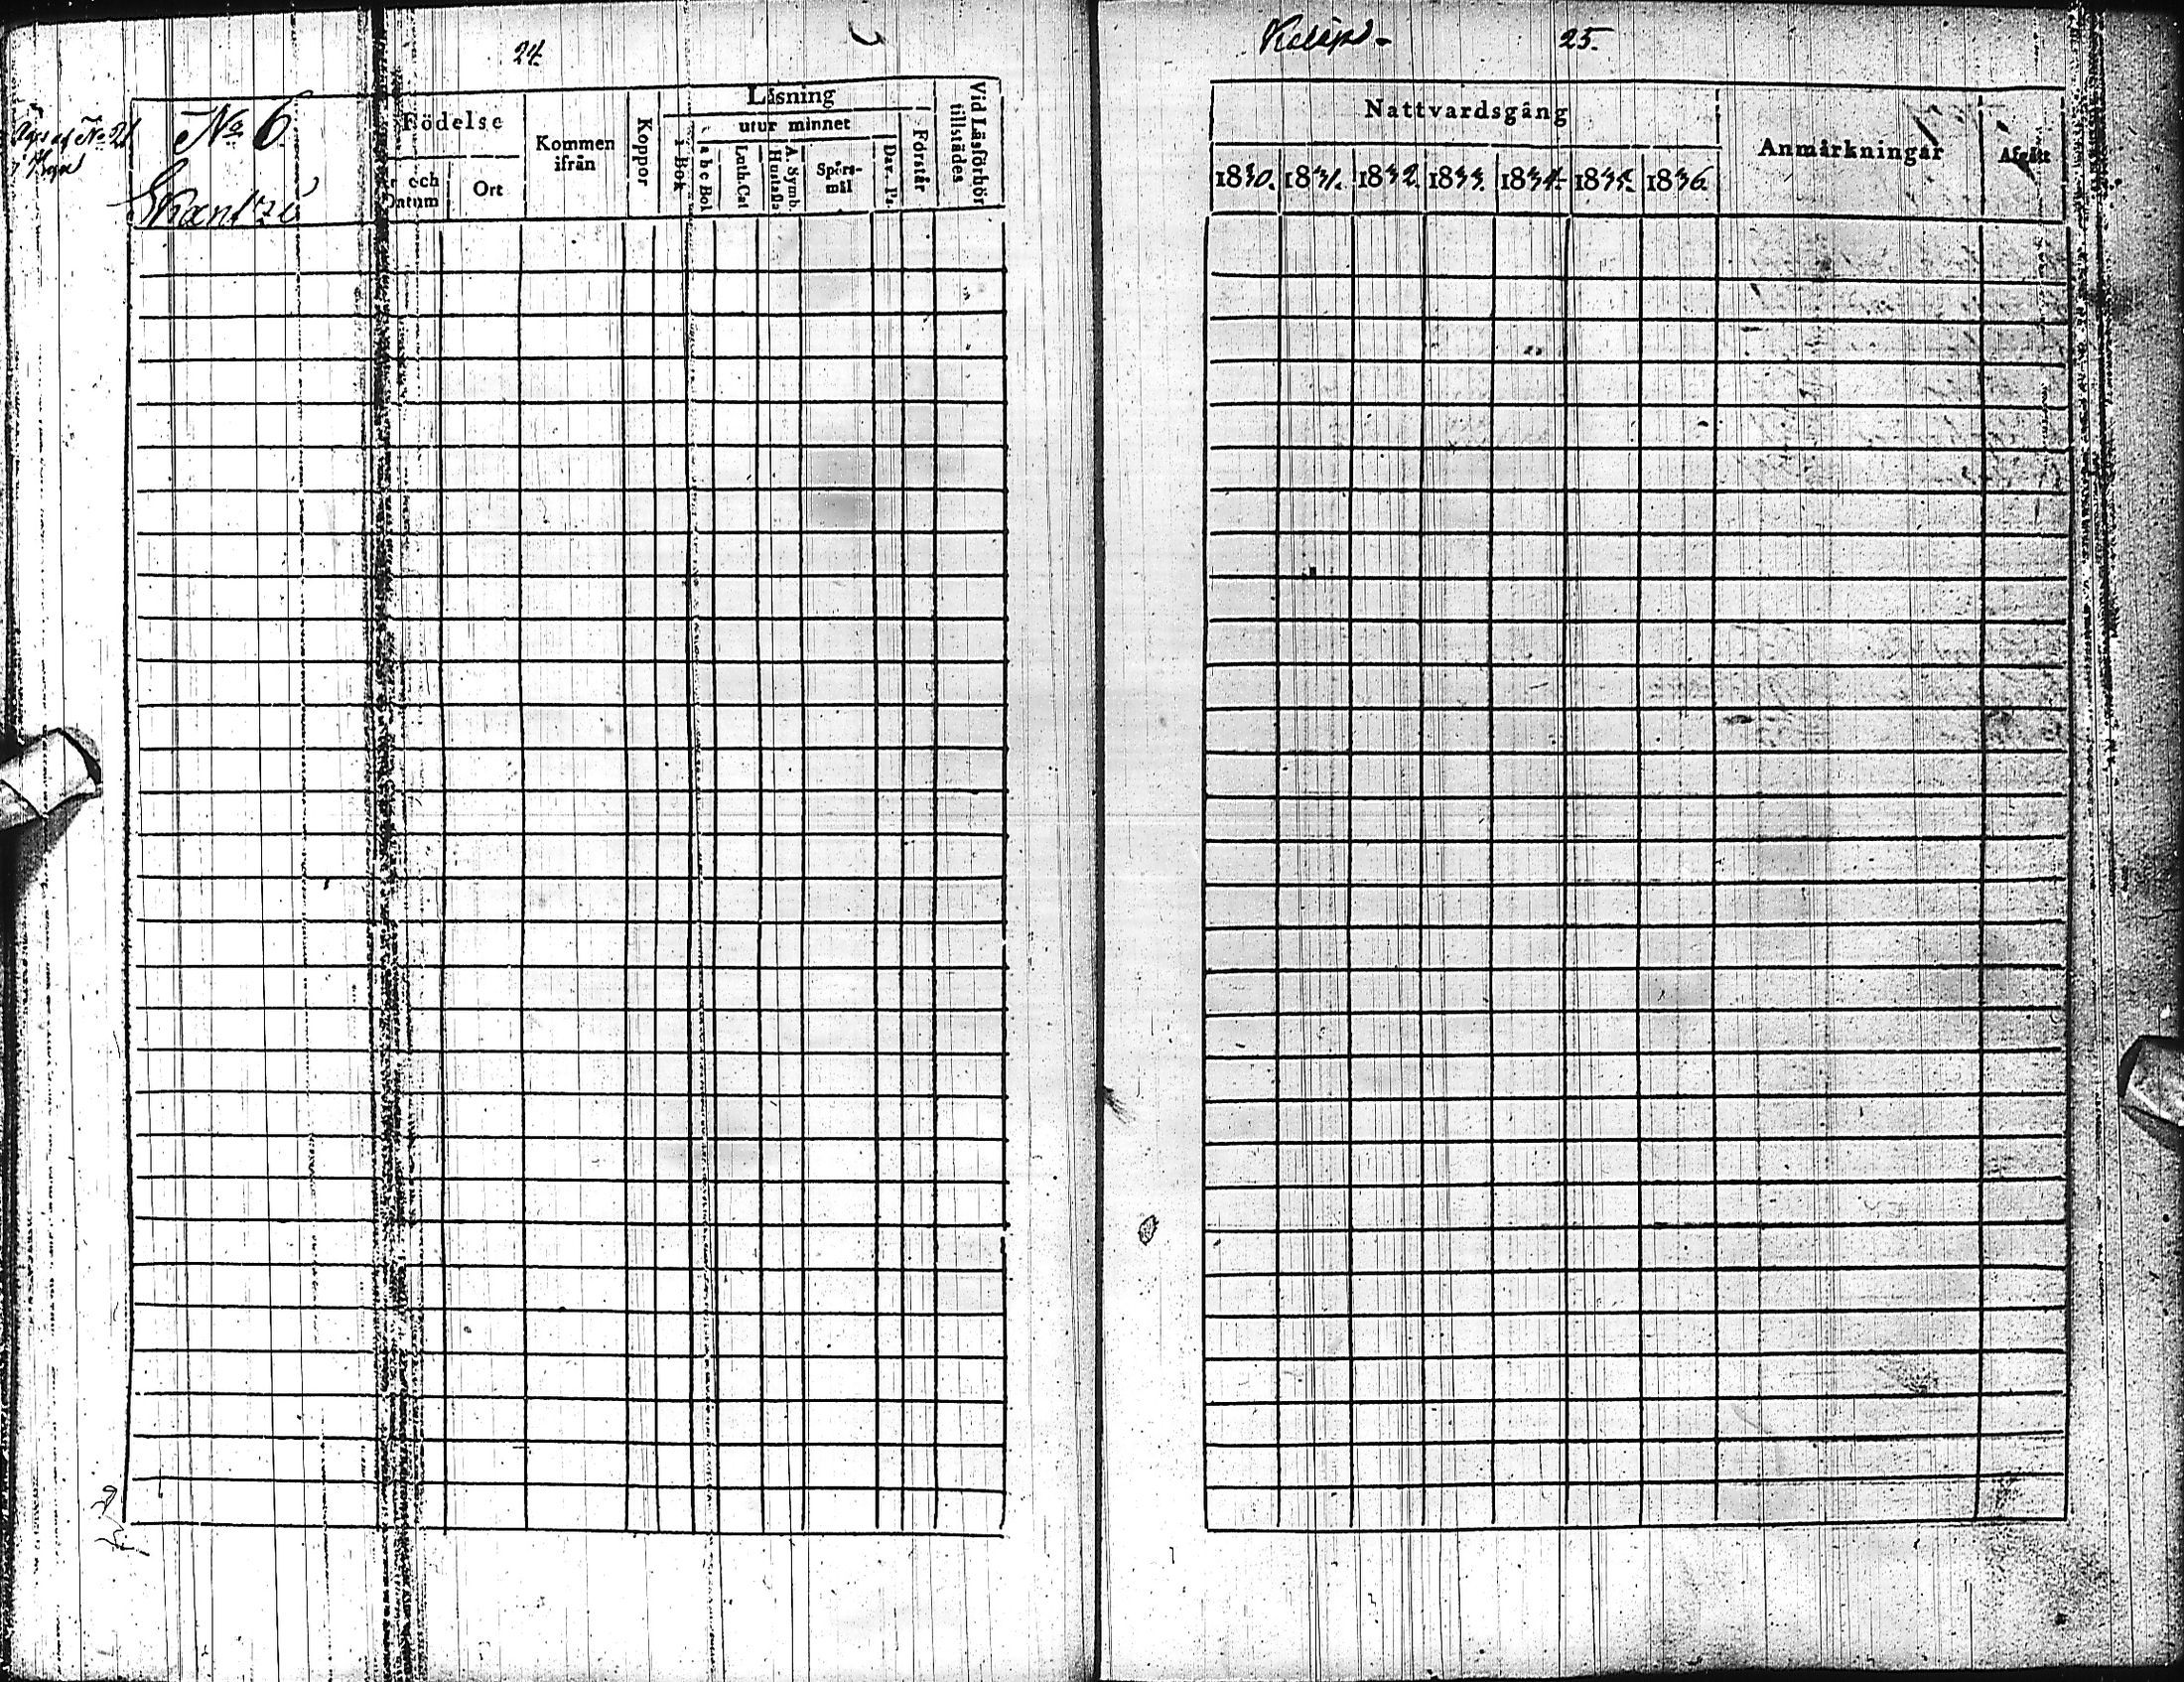 24.
Äges af No 21
No 6.
Födelse
Kommen ifrån
Koppor
Läsning
utur minnet
i Bok
a b c Bok
Luth. Cat
A. Symb. Hustafla
Spörs-mål
Dav. Ps.
Förstår
Vid Läsförhör tillstädes
r och Datum
Ort
25.
Nattvardsgång
Anmärkningar
Afgått
1830. 1831. 1832. 1833. 1834. 1835. 1836.